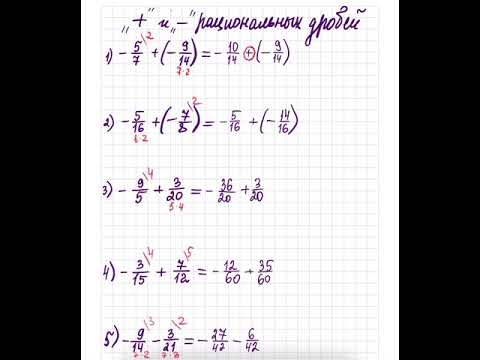 „+" и „–" рациональных дробей
1) -5/7\2 + (-9/14) = -10/14 + (-9/14)
7·2
2) -5/16 + (-7/8\2) = -5/16 + (-14/16)
3) -9/5\4 + 3/20 = -36/20 + 3/20
5·4
4) -3/15\4 + 7/12\5 = -12/60 + 35/60
5) -9/14\3 - 3/21\2 = -27/42 - 6/42
7·2 7·3